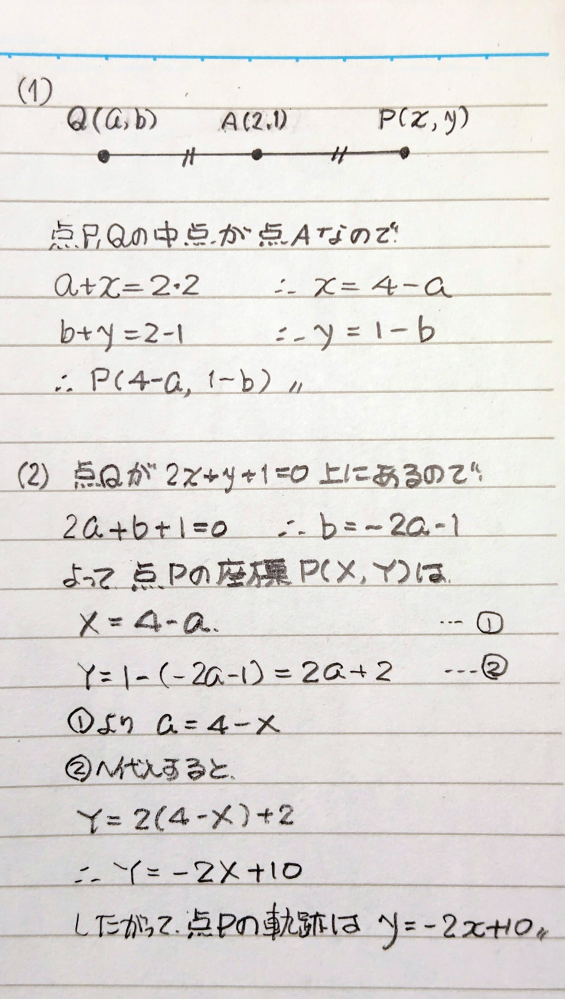 (1)
Q(a,b) A(2,1) P(x,y)
点P,Qの中点が点Aなので
a+x=2・2 ∴ x=4-a
b+y=2-1 ∴ y=1-b
∴ P(4-a, 1-b)〃
(2) 点Qが 2x+y+1=0 上にあるので
2a+b+1=0 ∴ b=-2a-1
よって 点Pの座標 P(X,Y)は
X=4-a. … ①
Y=1-(-2a-1)=2a+2 …②
①より a=4-X
②へ代入すると、
Y=2(4-X)+2
∴ Y=-2X+10
したがって、点Pの軌跡は y=-2x+10〃